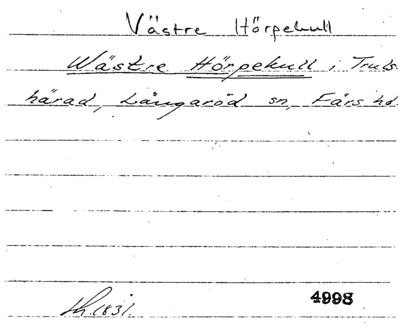 Västre Hörpekull
Wästre Hörpekull i Truls-
härad, Långaröd sn, Färs hd.
1831. 4998